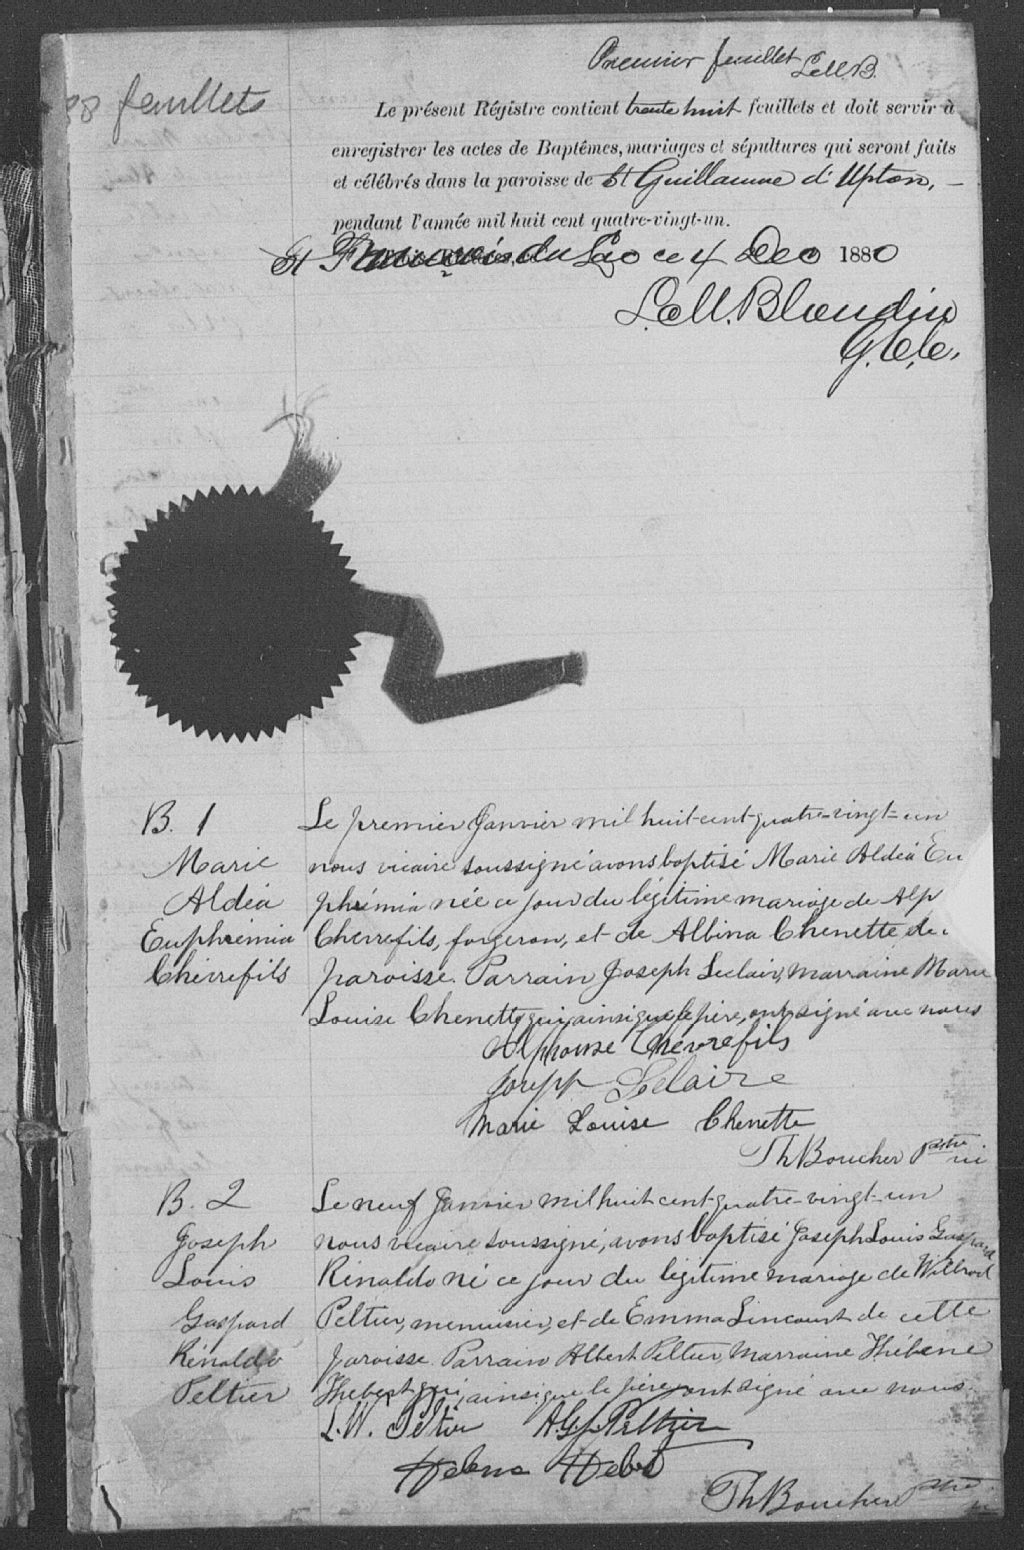 Premier feuillet L.M.B.
38 feuillets
Le présent Régistre contient trente huit feuillets et doit servir à
enregistrer les actes de Baptêmes, mariages et sépultures qui seront faits
et célébrés dans la paroisse de St Guillaume d'Upton,
pendant l'année mil huit cent quatre-vingt-un.
St François du Lac ce 4 Dec 1880
Blondin
B. 1
Marie
Aldéa
Euphrémia
Chèvrefils
Le premier Janvier mil huit-cent-quatre-vingt-un
nous vicaire soussigné avons baptisé Marie Aldéa Eu
phrémia née ce jour du légitime mariage de Alp
Chèvrefils, forgeron, et de Albina Chenette de
paroisse. Parrain Joseph Leclair, marraine Marie
Louise Chenette qui, ainsi que le père, ont signé avec nous
Alphonse Chèvrefils
Joseph Leclaire
Marie Louise Chenette
Th Boucher Ptre vic
B. 2
Joseph
Louis
Gaspard
Rénaldo
Peltier
Le neuf Janvier mil huit cent-quatre-vingt-un
nous vicaire soussigné, avons baptisé Joseph Louis Gaspard
Rénaldo né ce jour du légitime mariage de
Peltier, menuisier, et de Emma Lincourt de cette
paroisse. Parrain Albert Peltier, Marraine
qui, ainsi que le père, ont signé avec nous.
L. W. Peltier
Th Boucher Ptre